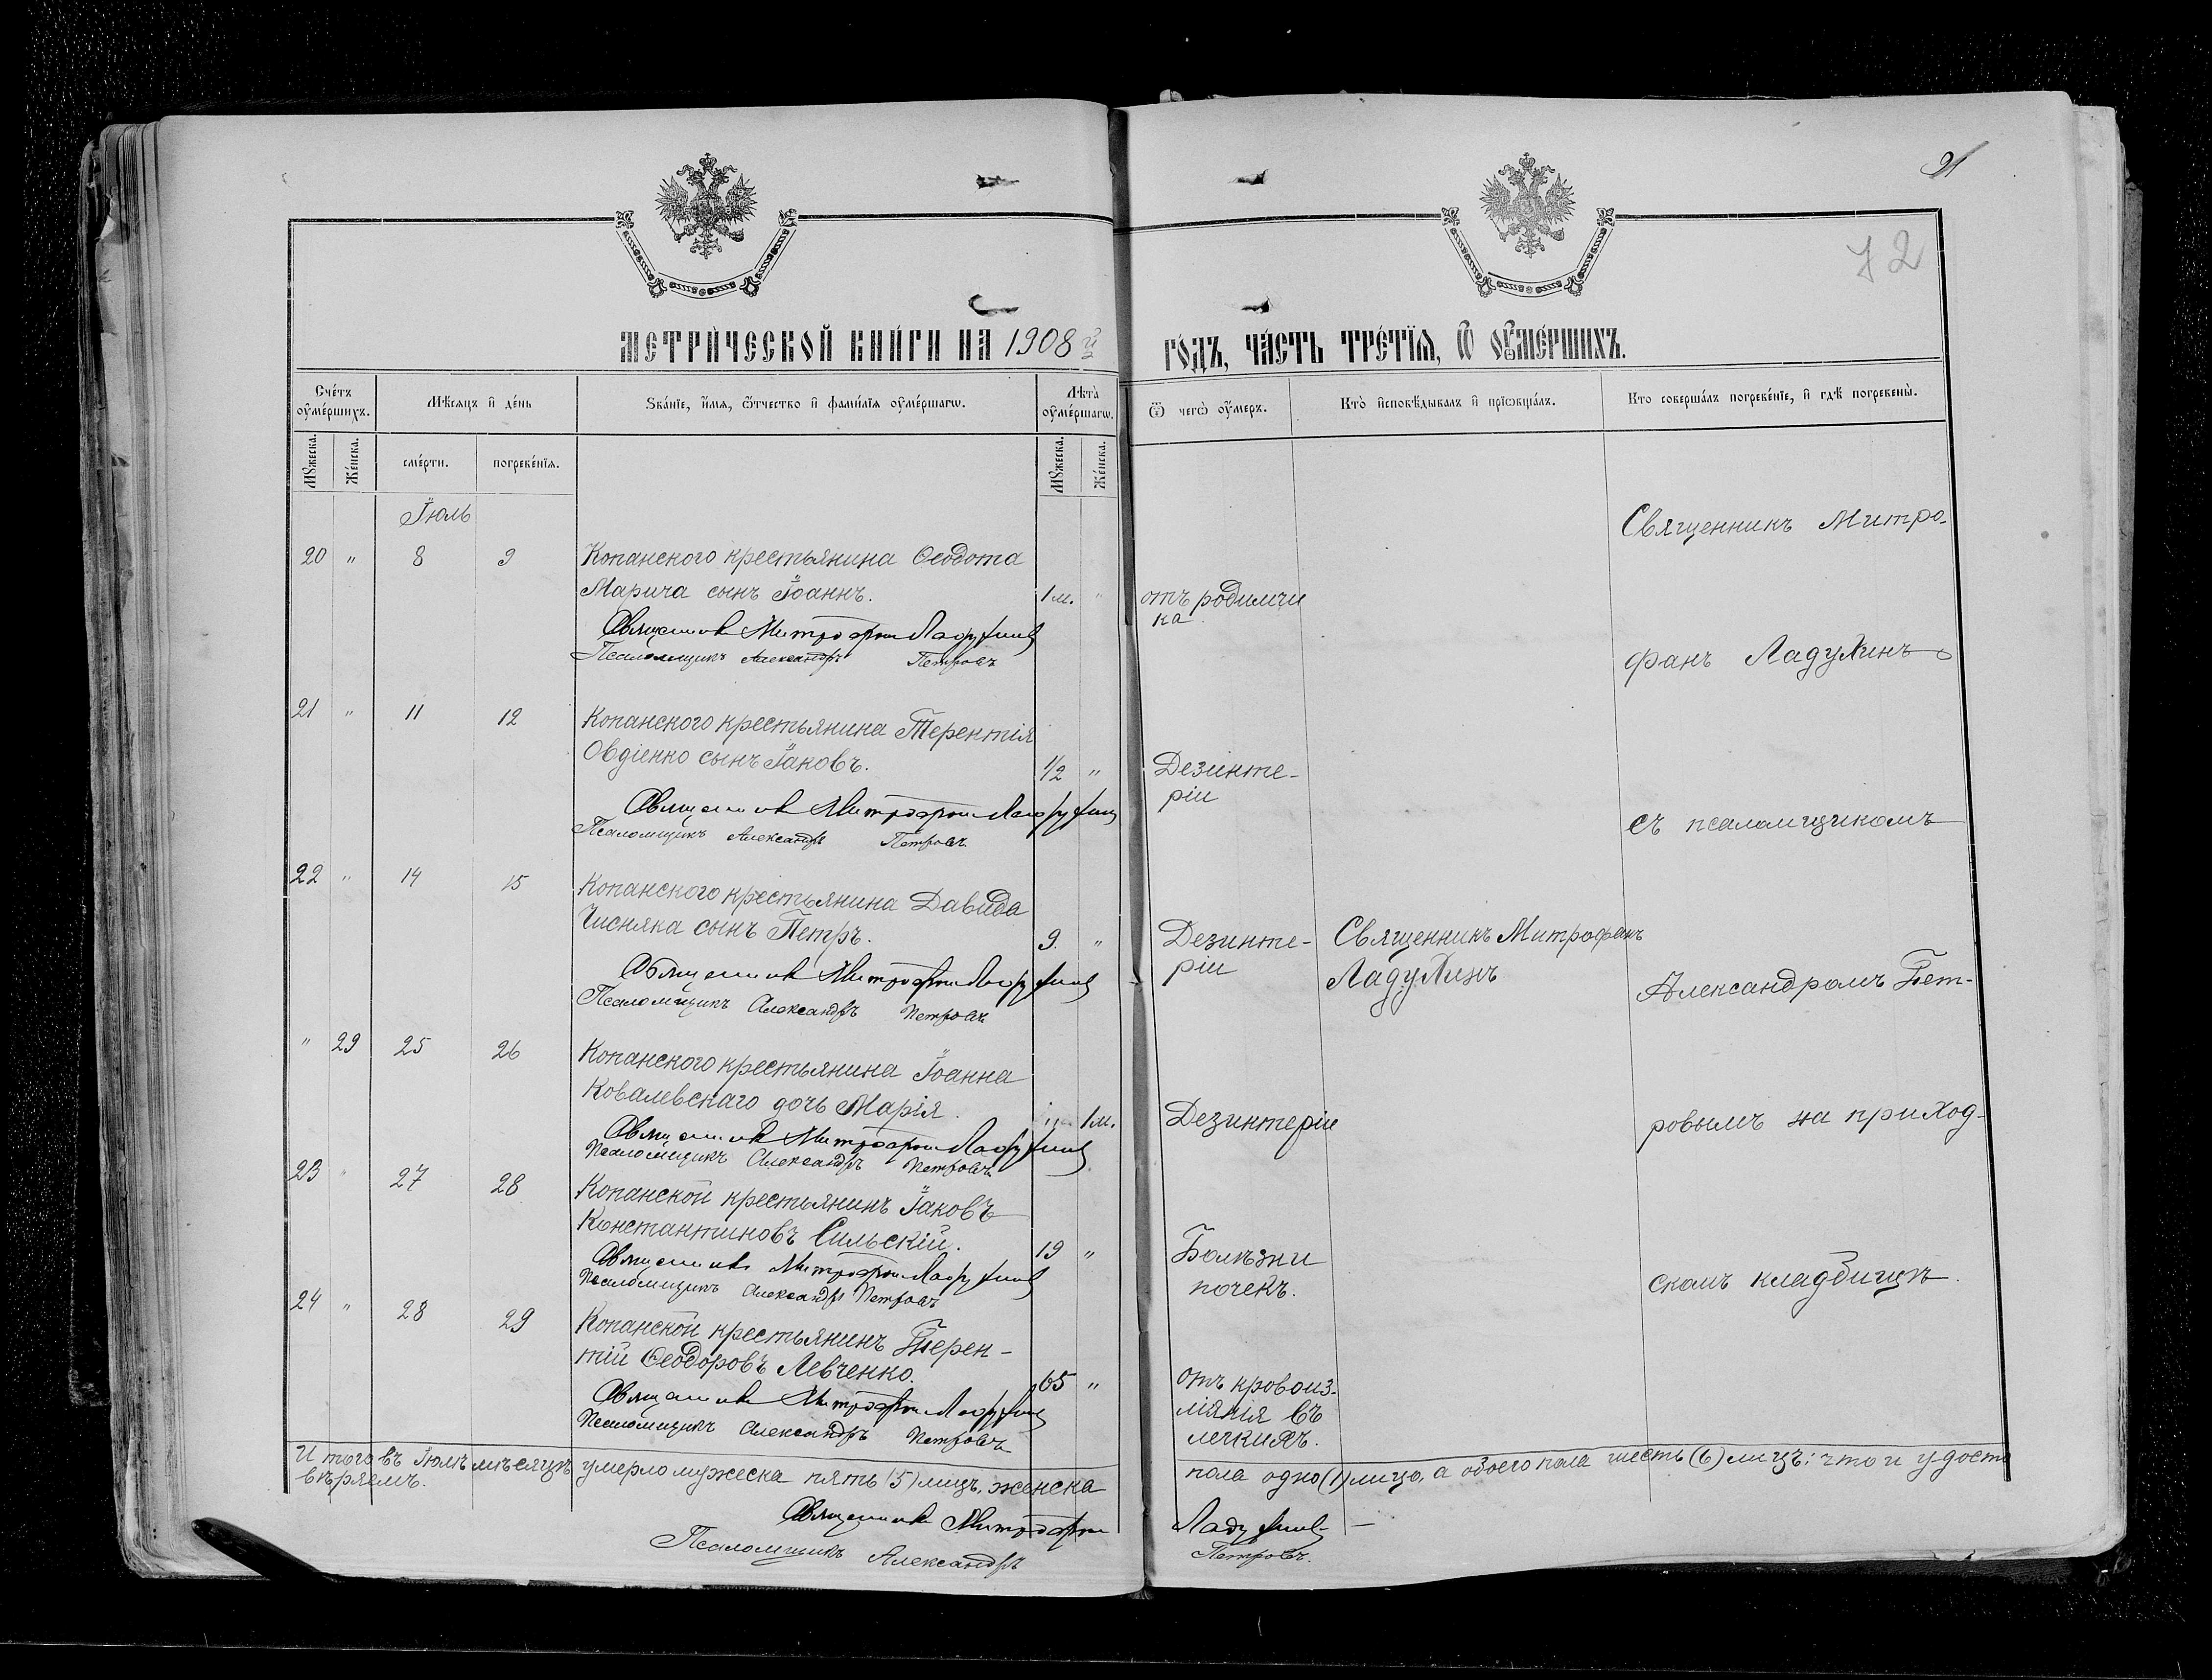 91
72
МЕТРИЧЕСКОЙ КНИГИ НА 1908й ГОДЪ, ЧАСТЬ ТРЕТІЯ, Ѿ ОУМЕРШИХЪ.
Счетъ оумершихъ.
Мѣсяцъ и день
Званіе, имя, отчество и фамилія оумершагѡ.
Лѣта оумершагѡ.
Ѿ чегѡ оумеръ.
Кто исповѣдывалъ и пріобщалъ.
Кто совершалъ погребеніе, и гдѣ погребены.
Мужеска.
Женска.
смерти.
погребенія.
Мужеска.
Женска.
Іюль
20 " 8 9 Копанского крестьянина Ѳеодота
Марича сынъ Іоаннъ. 1 м. " отъ родимчи
ка
Священникъ Митрофанъ Ладухинъ
Псаломщикъ Александръ Петровъ
21 " 11 12 Копанского крестьянина Терентія
Овдіенко сынъ Іаковъ. 1/2 " Дезинте-
ріи
Священникъ Митрофанъ Ладухинъ
Псаломщикъ Александръ Петровъ
22 " 14 15 Копанского крестьянина Давида
Чисняка сынъ Петръ. 9. " Дезинте- Священникъ Митрофанъ
ріи Ладухинъ
Священникъ Митрофанъ Ладухинъ
Псаломщикъ Александръ Петровъ
" 29 25 26 Копанского крестьянина Іоанна
Ковалевскаго дочь Марія. 1 м. Дезинтеріи
Священникъ Митрофанъ Ладухинъ
Псаломщикъ Александръ Петровъ
23 " 27 28 Копанской крестьянинъ Іаковъ
Константиновъ Сильскій. 19 " Болѣзни
почекъ.
Священникъ Митрофанъ Ладухинъ
Псаломщикъ Александръ Петровъ
24 " 28 29 Копанской крестьянинъ Терен-
тій Ѳеодоровъ Левченко. 65 " отъ кровоиз-
ліянія въ
легкихъ.
Священникъ Митрофанъ Ладухинъ
Псаломщикъ Александръ Петровъ
Священникъ Митро-
фанъ Ладухинъ
съ псаломщикомъ
Александромъ Пет-
ровымъ на приход-
скомъ кладбищѣ.
Итого въ Іюлѣ мѣсяцѣ умерло мужеска пять (5) лицъ, женска пола одно (1) лицо, а обоего пола шесть (6) лицъ; что и удосто
вѣряемъ.
Священникъ Митрофанъ Ладухинъ
Псаломщикъ Александръ Петровъ.